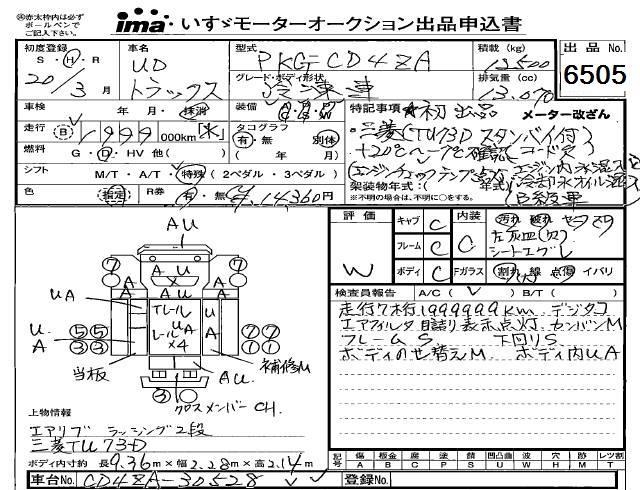 ㊟赤太枠内は必ず
ボールペンで
ご記入下さい。
ima いすゞモーターオークション出品申込書
初度登録 車名 型式 積載 (kg) 出品 No.
S・H・R UD PKG-CD4ZA 13500
20/3月 トラックス グレード・ボディ形状 排気量 (cc) 6505
冷凍車 13.070
車検 年 月・抹消 装備 A/C P/S P/W 特記事項 ★初出品 メーター改ざん
走行 B 1999 000km タコグラフ 三菱(TU73D スタンバイ付)
有・無 別体 +20℃〜-7℃確認
燃料 G・D・HV 他( ) ( 年 月)
シフト M/T・A/T・特殊 (2ペダル・3ペダル) エンジンチェックランプ点灯 エンジン内水混入
架装物年式:( 年式) 冷却水オイル混入
色 指定 R券 有・無 ¥14360円 ※不明の場合は、不明に○をする。 B級車
評価 キャブ C 内装 汚れ 破れ ヤケ スリ
W フレーム C C 左灰皿(欠)
シートエグレ
ボディ C Fガラス 割れ 線 点傷 イバリ
検査員報告 A/C ( ) B/T ( )
走行7桁1999999km デジタコ
エアフィルタ目詰り表示点灯 カンバンM
フレームS 下回りS
ボディのせ替えM ボディ内UA
AU
7 A A A 7
X
UA A A
TレールUA
U A
U. 5 5 レール A 7 7
A 3 3 ×4 1 1
当板 AU 補修M
3
クロスメンバーCH.
上物情報
エアリブ ラッシング2段
三菱TU73D
ボディ内寸約 長9.36m×幅2.28m×高2.14m
記号 傷 板金 歪 塗 錆 凹 凸 曲 波 穴 跡 レツ割
A B C P S U W H M T
車台No. CD4ZA-30528 登録No.